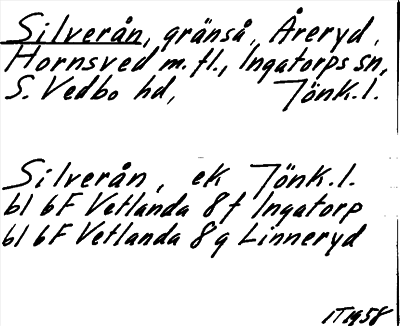 Silverån, gränså, Åreryd,
Hornsved m.fl., Ingatorps sn,
S. Vedbo hd, Jönk.l.
Silverån, ek Jönk.l.
bl 6F Vetlanda 8f Ingatorp
bl 6F Vetlanda 8g Linneryd
IT1958